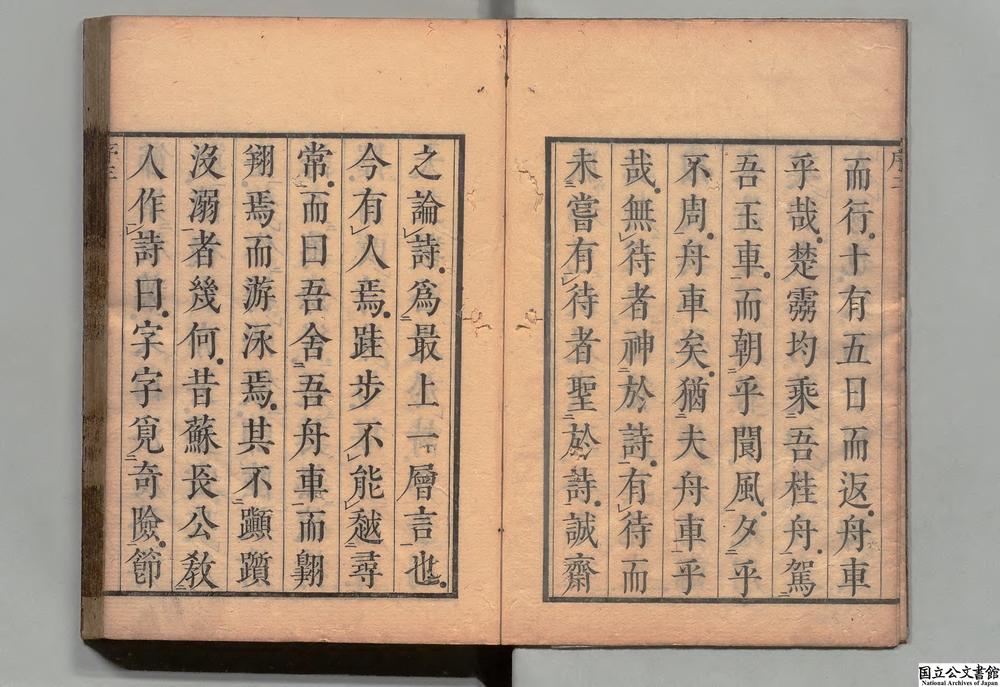 而行十有五日而返舟車
乎哉楚霛均乘吾桂舟駕
吾玉車而朝乎閬風夕乎
不周舟車矣猶夫舟車乎
哉無待者神於詩有待而
未嘗有待者聖於詩誠齋
之論詩爲最上一層言也
今有人焉跬步不能越尋
常而曰吾舍吾舟車而翺
翔焉而游泳焉其不顚躓
沒溺者幾何昔蘇長公敎
人作詩曰字字覓奇險節
国立公文書館
National Archives of Japan